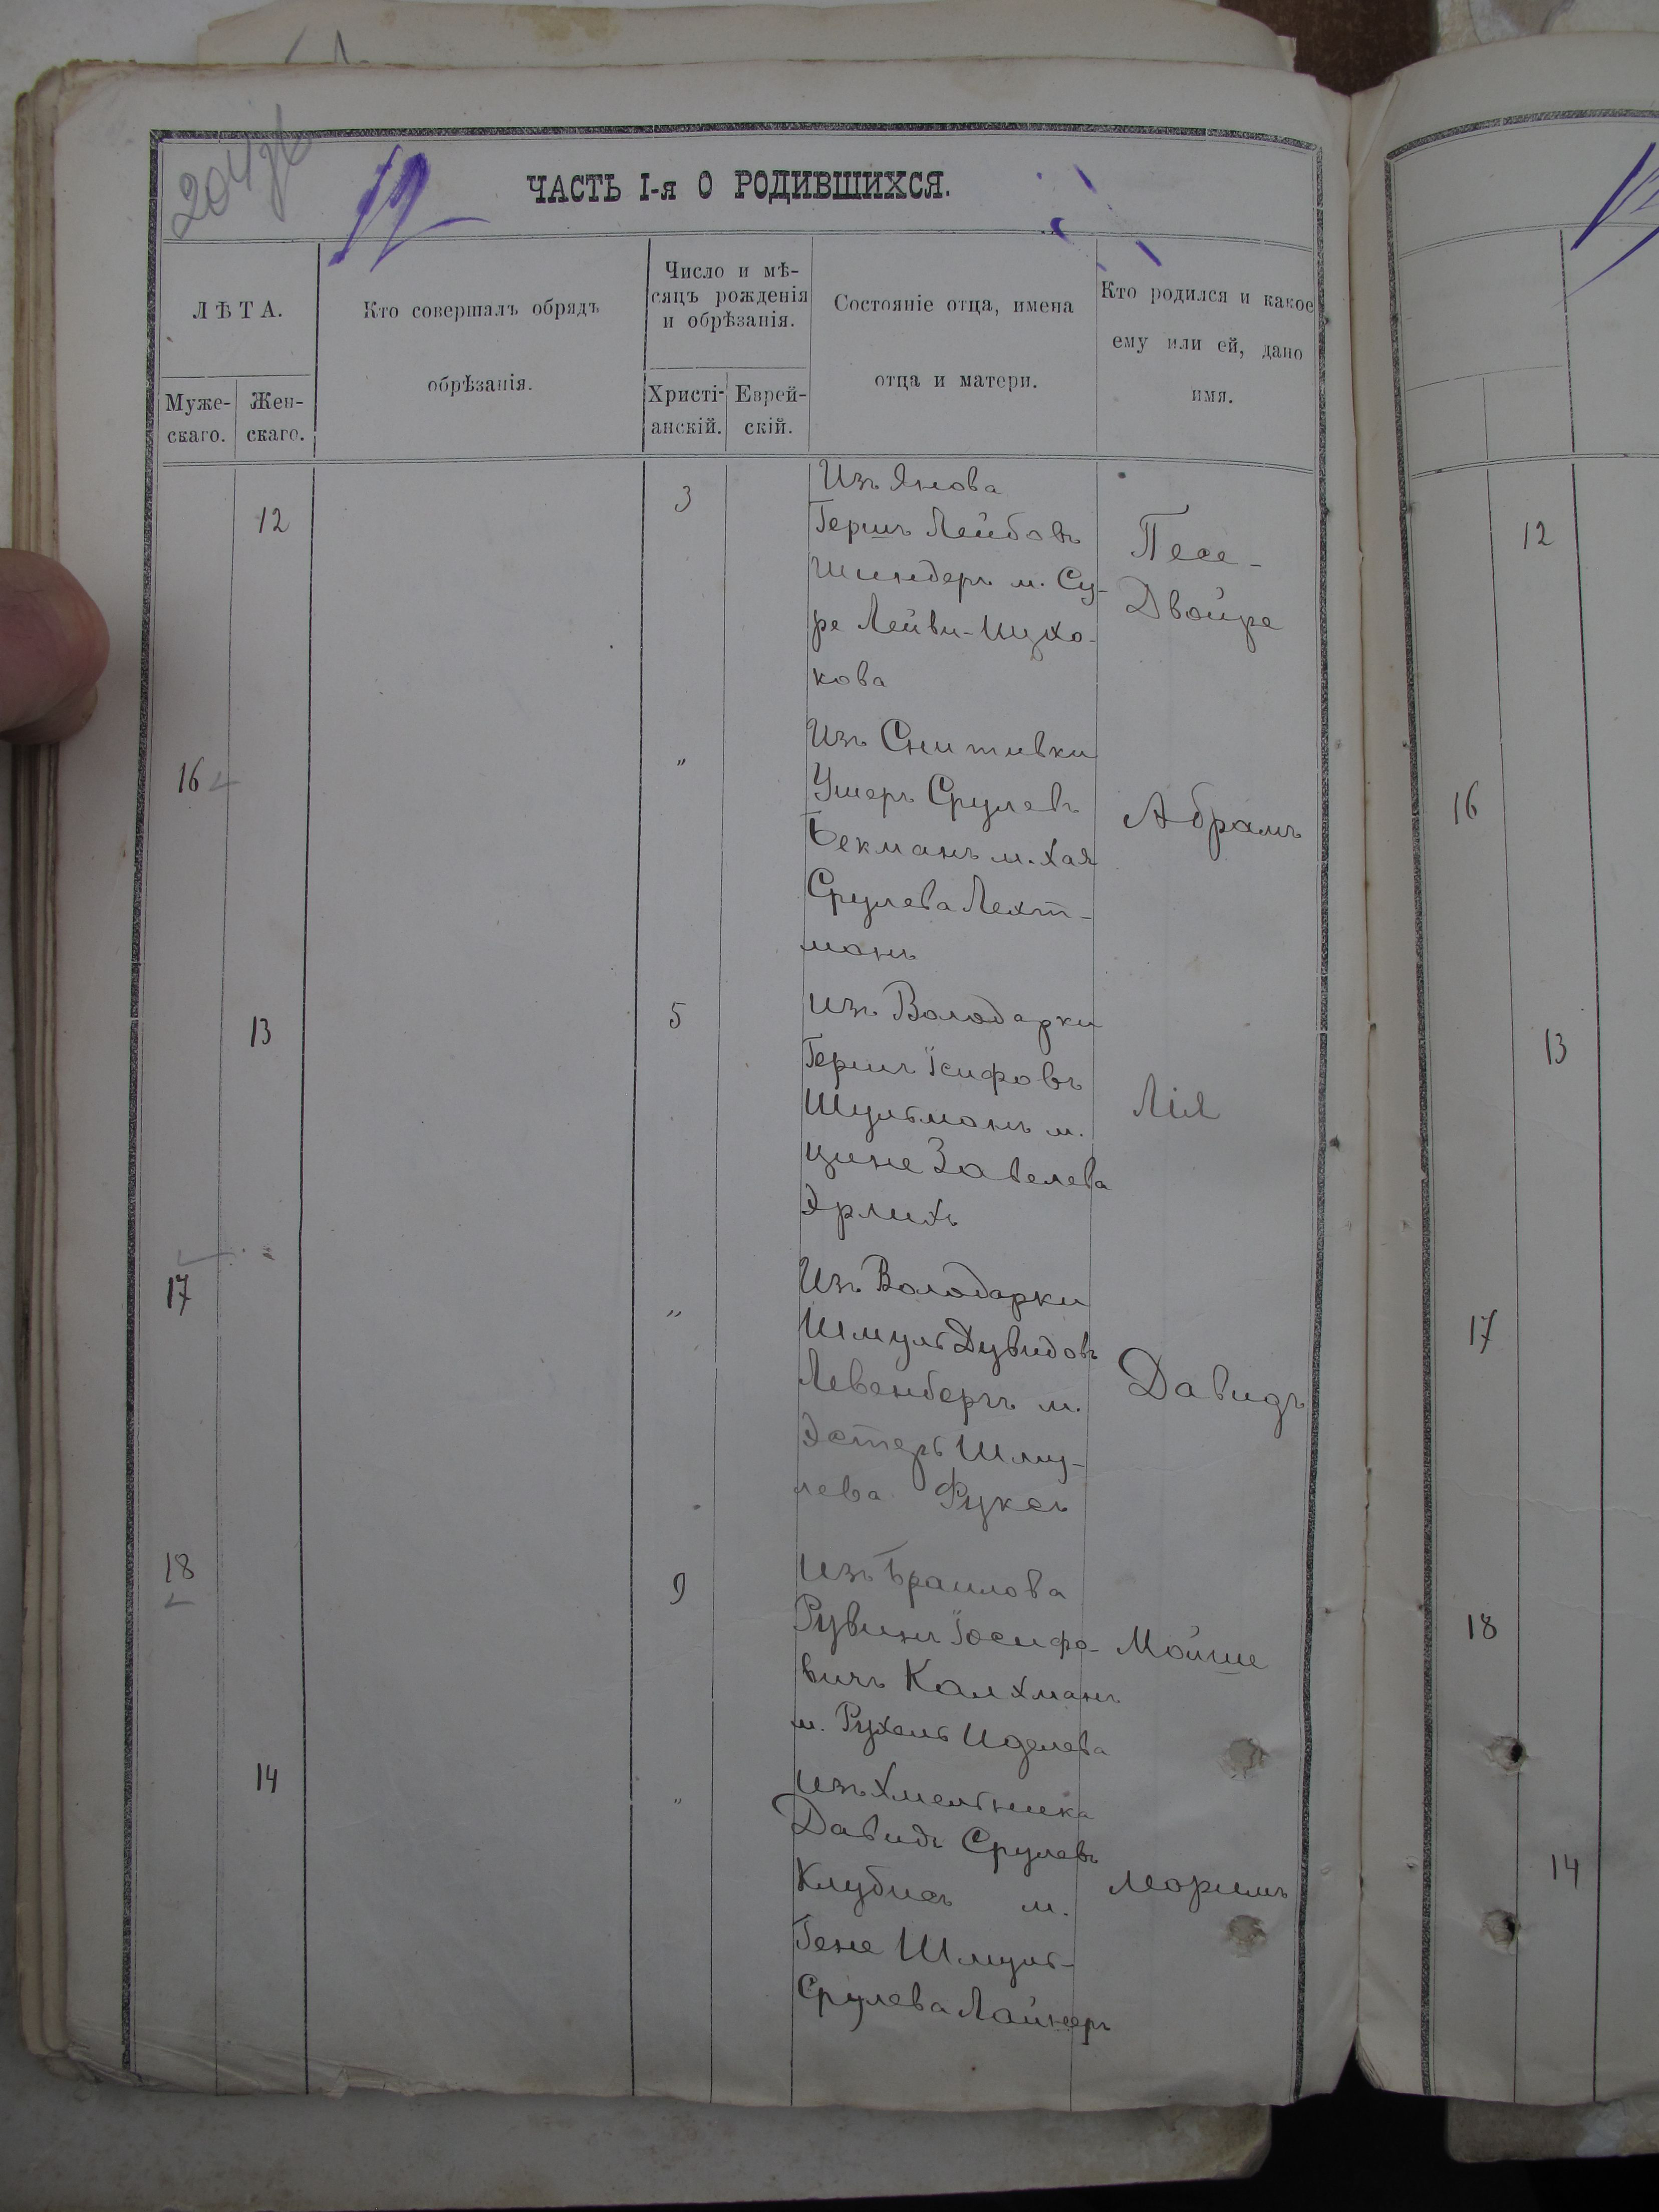 12
ЧАСТЬ I-я О РОДИВШИХСЯ.
ЛѢТА.
Муже-
скаго.
Жен-
скаго.
Кто совершалъ обрядъ
обрѣзанія.
Число и мѣ-
сяцъ рожденія
и обрѣзанія.
Христі-
анскій.
Еврей-
скій.
Состояніе отца, имена
отца и матери.
Кто родился и какое
ему или ей, дано
имя.
12
3
Изъ Янова
Гершъ Лейбовъ
Шиндеръ м. Су-
ре Лейви-Ицхо-
кова
Песе-
Двойре
16
"
Изъ Снитивки
Ушеръ Срулевъ
Бекманъ м. Хая
Срулева Лехт-
манъ
Абрамъ
13
5
Изъ Володарки
Гершъ Ісифовъ
Шульманъ м.
Цине Завелева
Эрлихъ
Лія
17
"
Изъ Володарки
Шмуль Дувидовъ
Левенбергъ м.
Эстеръ Шму-
лева Фуксъ
Давидъ
18
9
Изъ Браилова
Рувинъ Іосифо-
вичъ Калхманъ
м. Рухель Иделева
Мойше
14
"
Изъ Хмельника
Давидъ Срулевъ
Клубисъ м.
Гене Шмуль-
Срулева Лайнеръ
Моримъ
12
16
13
17
18
14